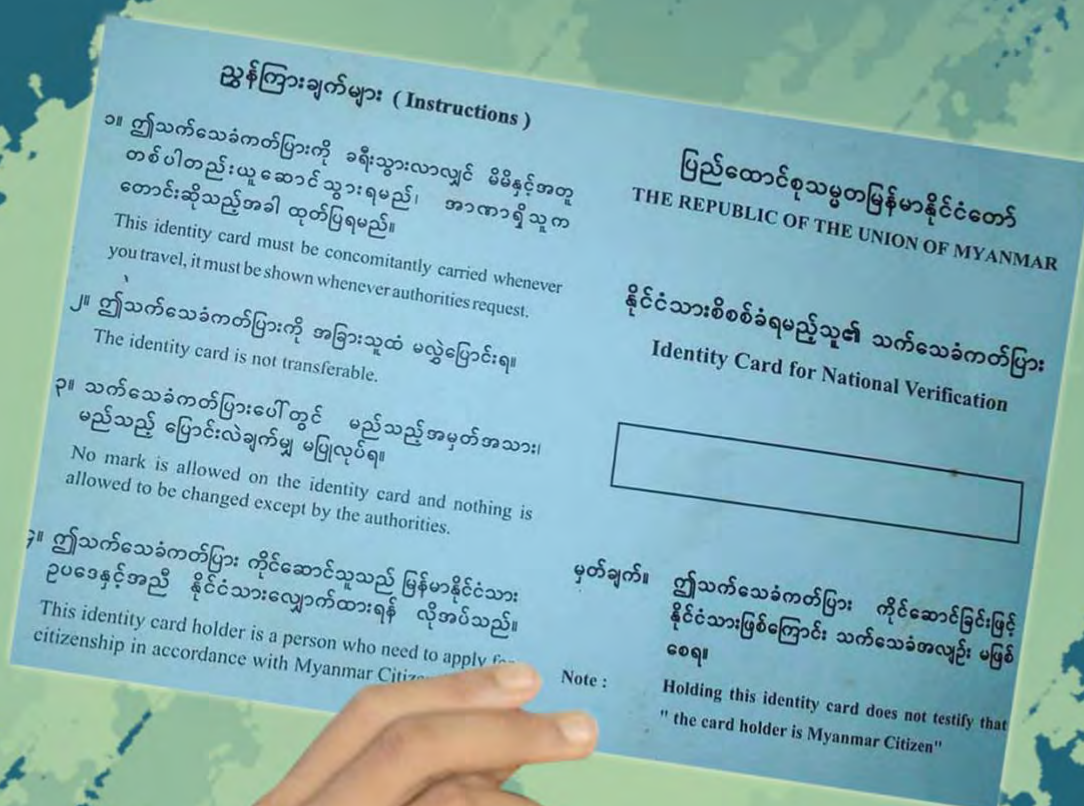 ညွှန်ကြားချက်များ ( Instructions )
၁။ ဤသက်သေခံကတ်ပြားကို ခရီးသွားလာလျှင် မိမိနှင့်အတူ
တစ်ပါတည်းယူဆောင်သွားရမည်၊ အာဏာရှိသူက
တောင်းဆိုသည့်အခါ ထုတ်ပြရမည်။
This identity card must be concomitantly carried whenever
you travel, it must be shown whenever authorities request.
၂။ ဤသက်သေခံကတ်ပြားကို အခြားသူထံ မလွှဲပြောင်းရ။
The identity card is not transferable.
၃။ သက်သေခံကတ်ပြားပေါ်တွင် မည်သည့်အမှတ်အသား၊
မည်သည့် ပြောင်းလဲချက်မျှ မပြုလုပ်ရ။
No mark is allowed on the identity card and nothing is
allowed to be changed except by the authorities.
၄။ ဤသက်သေခံကတ်ပြား ကိုင်ဆောင်သူသည် မြန်မာနိုင်ငံသား
ဥပဒေနှင့်အညီ နိုင်ငံသားလျှောက်ထားရန် လိုအပ်သည်။
This identity card holder is a person who need to apply
citizenship in accordance with Myanmar
ပြည်ထောင်စုသမ္မတမြန်မာနိုင်ငံတော်
THE REPUBLIC OF THE UNION OF MYANMAR
နိုင်ငံသားစိစစ်ခံရမည့်သူ၏ သက်သေခံကတ်ပြား
Identity Card for National Verification
မှတ်ချက်။ ဤသက်သေခံကတ်ပြား ကိုင်ဆောင်ခြင်းဖြင့်
နိုင်ငံသားဖြစ်ကြောင်း သက်သေခံအလျဉ်း မဖြစ်
စေရ။
Note : Holding this identity card does not testify that
" the card holder is Myanmar Citizen"